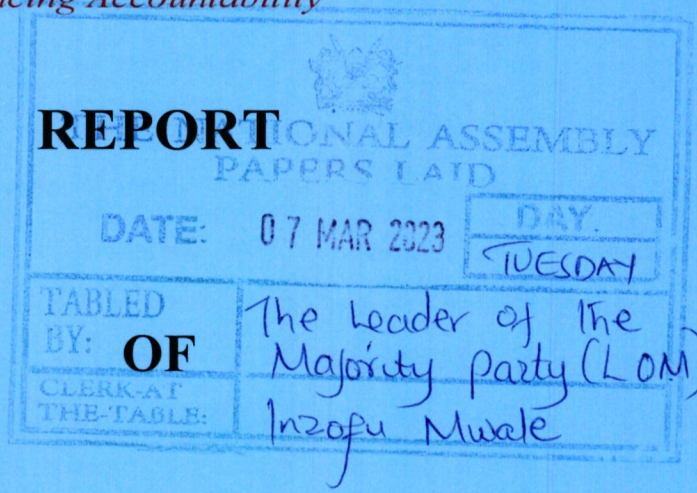 Accountability
REPORT
THE NATIONAL ASSEMBLY
PAPERS LAID
DATE: 07 MAR 2023
DAY.
TUESDAY
TABLED
BY:
The Leader of the
Majority party (LOM)
OF
CLERK-AT
THE-TABLE:
Inzofu Mwale